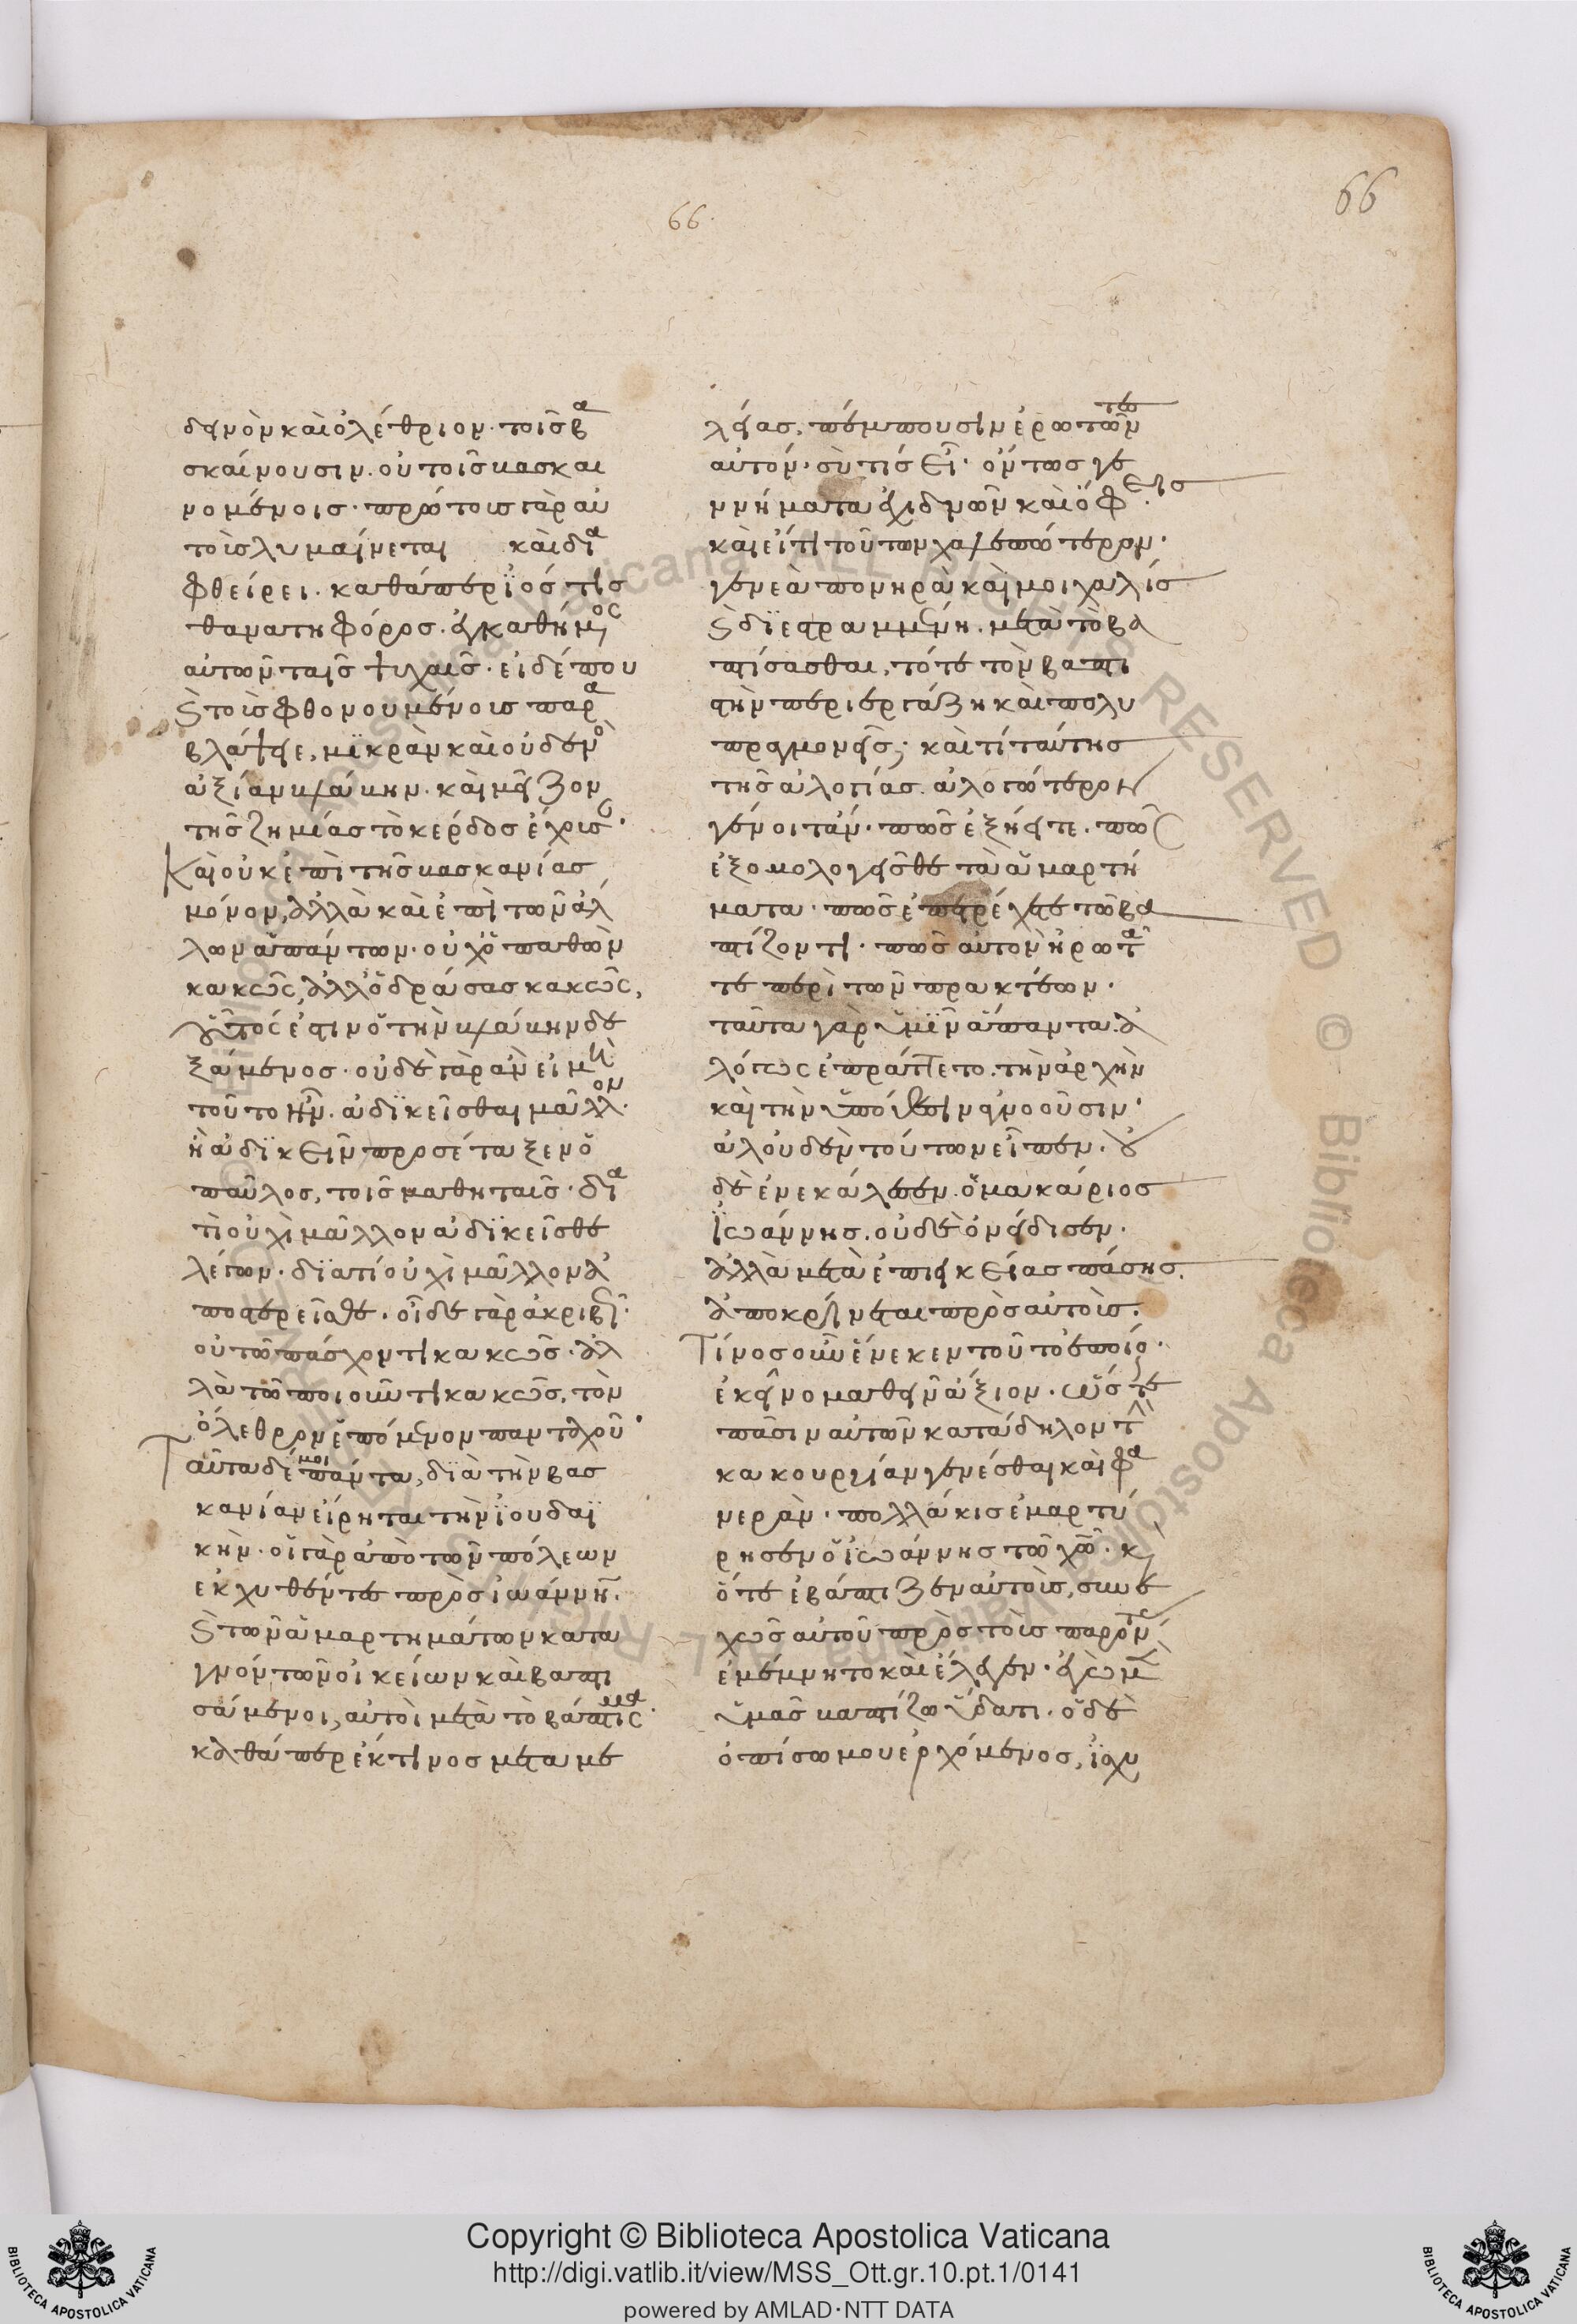 66
66.
δεινὸν καὶ ὀλέθριον· τοῖς βα
σκαίνουσιν. οὐ τοῖς βασκαι
νομένοις· πρώτοις γὰρ αὐ
τοῖς λυμαίνεται καὶ δια
φθείρει. καθάπερ ἰός τις
θανατηφόρος. ἐγκαθήμενος
αὐτῶν ταῖς ψυχαῖς. εἰ δέ που
καὶ τοῖς φθονουμένοις παρα
βλάψειε, μικρὰν καὶ οὐδενὸς
ἀξίαν βλάβην. καὶ μεῖζον
τῆς ζημίας τὸ κέρδος ἔχουσ·
Καὶ οὐκ ἐπὶ τῆς βασκανίας
μόνον, ἀλλὰ καὶ ἐπὶ τῶν ἄλ
λων ἁπάντων. οὐχ ὁ παθὼν
κακῶς, ἀλλ' ὁ δράσας κακῶς,
οὗτός ἐστιν ὁ τὴν βλάβην δε
ξάμενος. οὐδὲ γὰρ ἂν εἰ μὴ
τοῦτο ἦν. ἀδικεῖσθαι μᾶλλον·
ἢ ἀδικεῖν προσέταξεν ὁ
παῦλος, τοῖς μαθηταῖς. δια
τί οὐχὶ μᾶλλον ἀδικεῖσθε
λέγων. διατί οὐχὶ μᾶλλον ἀ
ποστερεῖσθε. οἶδε γὰρ ἀκριβῶς·
οὐ τῷ πάσχοντι κακῶς. ἀλ
λὰ τῷ ποιοῦντι κακῶς, τὸν
ὄλεθρον ἑπόμενον πανταχοῦ·
Ταῦτα δέ μοι πάντα, διὰ τὴν βασ
κανίαν εἴρηται τὴν ἰουδαϊ
κήν. οἱ γὰρ ἀπὸ τῶν πόλεων
ἐκχυθέντες πρὸς ἰωάννην.
καὶ τῶν ἁμαρτημάτων κατα
γνόντων οἰκείων καὶ βαπτι
σάμενοι, αὐτοὶ μετὰ τὸ βάπτισμα
καθάπερ ἔκ τινος μεταμε
λείας, πέμπουσιν ἐρωτῶντες
αὐτόν. σὺ τίς εἶ· ὄντως γε
ννήματα ἐχιδνῶν καὶ ὄφεις
καὶ εἴ τι τούτων χαλεπώτερον.
γενεὰ πονηρὰ καὶ μοιχαλίς
καὶ διεστραμμένη. μετὰ τὸ βα
πτίσασθαι, τότε τὸν βαπτι
στὴν περιεργάζῃ καὶ πολυ
πραγμονεῖς; καὶ τί ταύτης
τῆς ἀλογίας ἀλογώτερον
γένοιτ' ἄν· πῶς ἐξῄειτε. πῶς
ἐξομολογεῖσθε τὰ ἁμαρτή
ματα. πῶς ἐπετρέχετε τῷ βα
πτίζοντι. πῶς αὐτὸν ἠρωτᾶ
τε περὶ τῶν πρακτέων.
ταῦτα γὰρ ὑμῖν ἅπαντα ἀ
λόγως ἐπράττετο. τὴν ἀρχὴν
καὶ τὴν ὑπόθεσιν ἀγνοοῦσιν·
ἀλλ' οὐδὲν τούτων εἶπεν. οὐ
δὲ ἐνεκάλεσεν. ὁ μακάριος
ἰωάννης. οὐδὲ ὀνείδισεν.
ἀλλὰ μετὰ ἐπιεικείας πάσης
ἀποκρίνεται πρὸς αὐτούς.
Τίνος οὖν ἕνεκεν τοῦτο ἐποίει·
ἐκεῖνο μαθεῖν ἄξιον. ὥστε
πᾶσιν αὐτῶν κατάδηλον τὴν
κακουργίαν γενέσθαι καὶ φα
νεράν. πολλάκις ἐμαρτύ
ρησεν ὁ ἰωάννης τῷ χῷ. καὶ
ὅτε ἐβάπτιζεν αὐτούς, συνε
χῶς αὐτοῦ πρὸς τοὺς παρόντας
ἐμέμνητο καὶ ἔλεγεν. ἐγὼ μὲν
ὑμᾶς βαπτίζω ὕδατι. ὁ δὲ
ὀπίσω μου ἐρχόμενος, ἰσχυ
Copyright © Biblioteca Apostolica Vaticana
http://digi.vatlib.it/view/MSS_Ott.gr.10.pt.1/0141
powered by AMLAD·NTT DATA
BIBLIOTECA APOSTOLICA VATICANA
BIBLIOTECA APOSTOLICA VATICANA